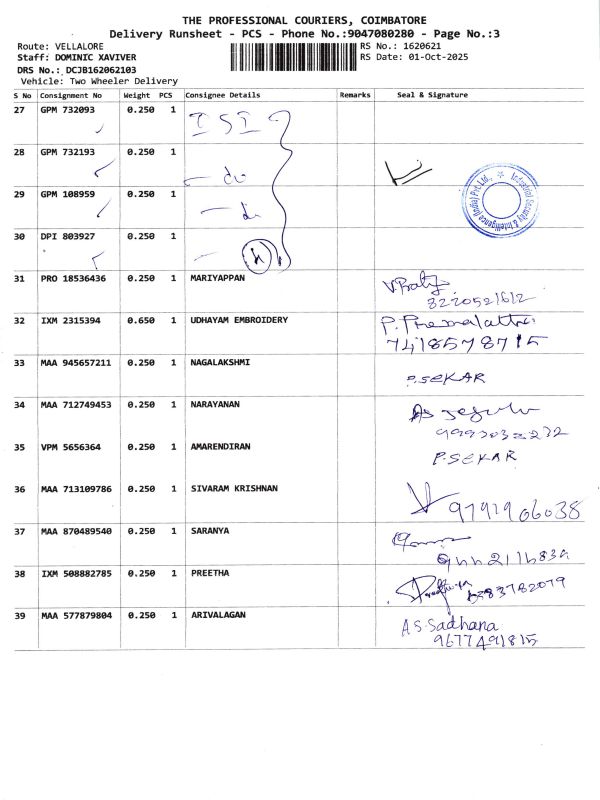 THE PROFESSIONAL COURIERS, COIMBATORE
Delivery Runsheet - PCS - Phone No.:9047080280 - Page No.:3
Route: VELLALORE RS No.: 1620621
Staff: DOMINIC XAVIVER RS Date: 01-Oct-2025
DRS No.: DCJB162062103
Vehicle: Two Wheeler Delivery
S No Consignment No Weight PCS Consignee Details Remarks Seal & Signature
27 GPM 732093 0.250 1 ISI
28 GPM 732193 0.250 1 - do
29 GPM 108959 0.250 1 - do
Industrial Security & Intelligence (India) Pvt. Ltd.,
30 DPI 803927 0.250 1
31 PRO 18536436 0.250 1 MARIYAPPAN
8220521612
32 IXM 2315394 0.650 1 UDHAYAM EMBROIDERY P. Premalatha
7418578715
33 MAA 945657211 0.250 1 NAGALAKSHMI P.SEKAR
34 MAA 712749453 0.250 1 NARAYANAN
35 VPM 5656364 0.250 1 AMARENDIRAN P.SEKAR
36 MAA 713109786 0.250 1 SIVARAM KRISHNAN 9791906038
37 MAA 870489540 0.250 1 SARANYA
38 IXM 508882785 0.250 1 PREETHA
39 MAA 577879804 0.250 1 ARIVALAGAN A.S.Sadhana
9677491815